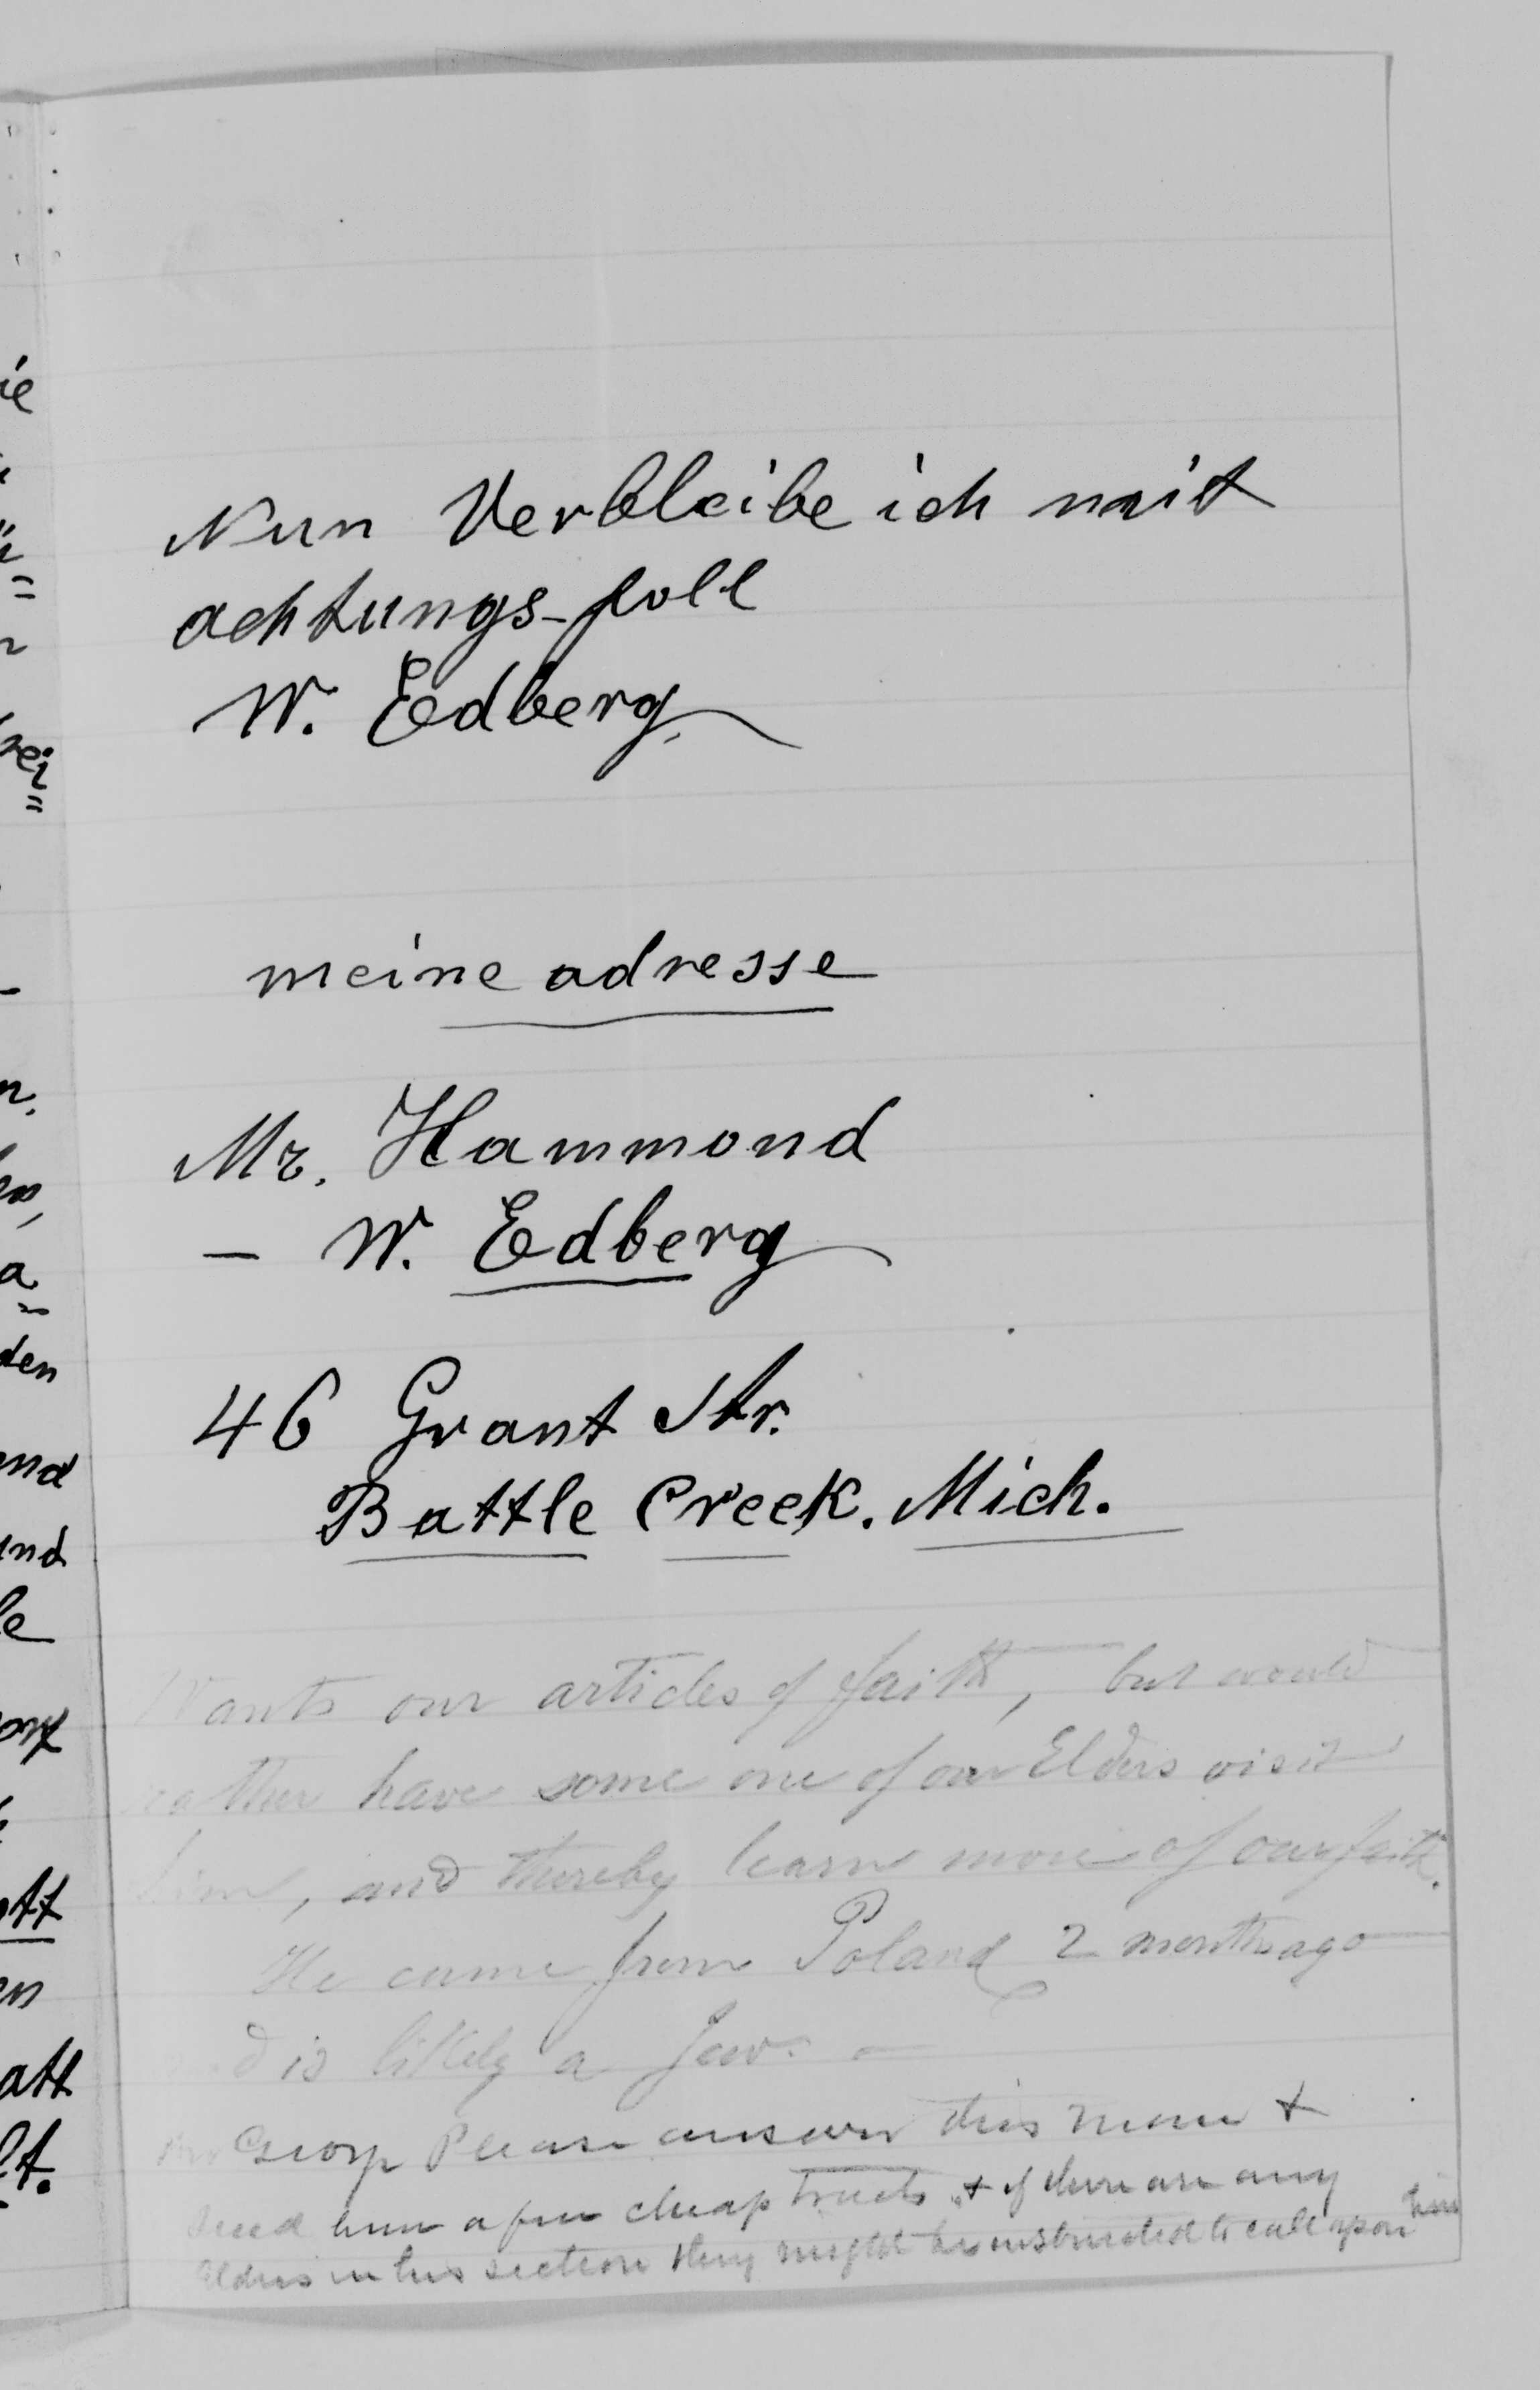 Nun Verbleibe ich mit
achtungs-foll
W. Edberg.
meine adresse
Mr. Hammond
– W. Edberg
46 Grant Str.
Battle Creek. Mich.
Wants our articles of faith, but would
rather have some one of our Elders visit
him, and thereby learn more of our faith.
He came from Poland 2 months ago
and is likely a Jew. —
Bro Geo Please answer this man &
send him a few cheap tracts & if there are any
Elders in his section they might be instructed to call upon him